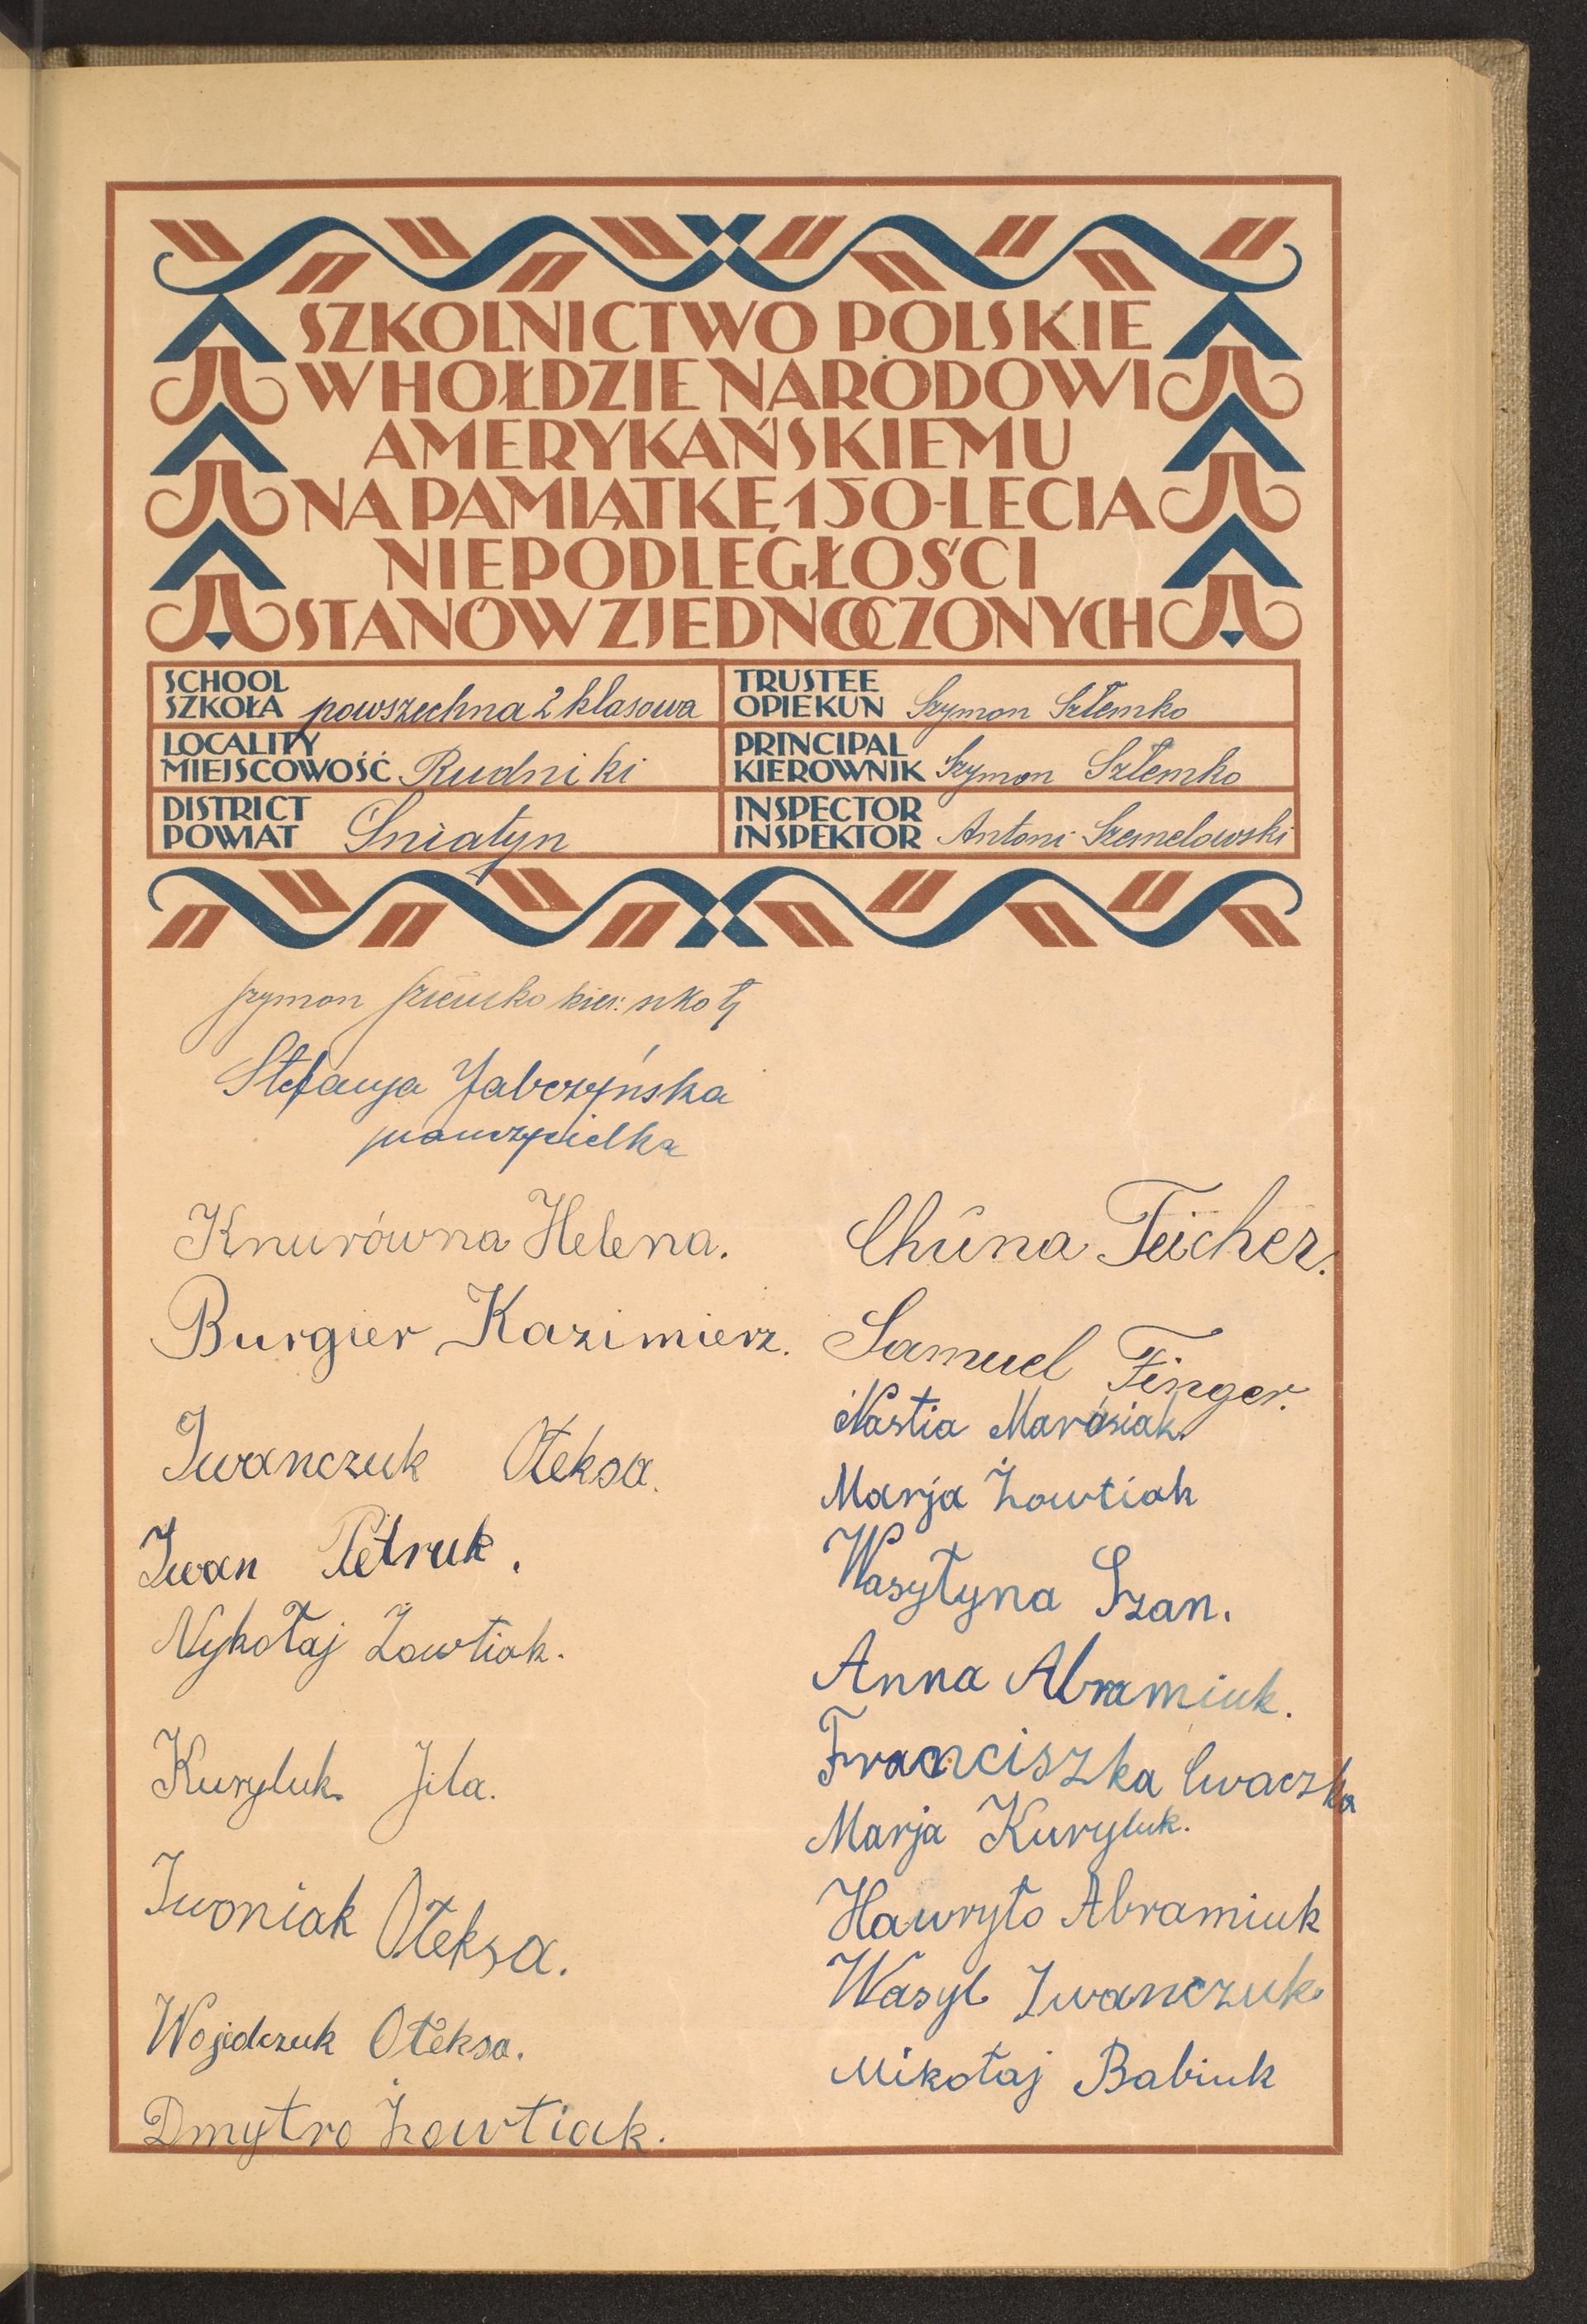 SZKOLNICTWO POLSKIE
W HOŁDZIE NARODOWI
AMERYKAŃSKIEMU
NA PAMIĄTKĘ 150-LECIA
NIEPODLEGŁOŚCI
STANÓW ZJEDNOCZONYCH
SCHOOL
SZKOŁA powszechna 2 klasowa
LOCALITY
MIEJSCOWOŚĆ Rudniki
DISTRICT
POWIAT Śniatyn
TRUSTEE
OPIEKUN Szymon Szłemko
PRINCIPAL
KIEROWNIK Szymon Szłemko
INSPECTOR
INSPEKTOR Antoni Szemelowski
Szymon Szłemko kier. szkoły
Stefanja Jabczyńska
nauczycielka
Knurówna Helena.
Burgier Kazimierz.
Iwanczuk Ołeksa.
Iwan Petruk.
Nykołaj Żowtiak.
Kuryluk Jila.
Iwoniak Ołeksa.
Wojedczuk Ołeksa.
Dmytro Żowtiak.
Chûna Teicher.
Samuel Finger.
Nastia Marósiak.
Marja Żowtiak
Wasyłyna Szan.
Anna Abramiuk.
Franciszka Cwaczka
Marja Kuryluk.
Hawryło Abramiuk
Wasyl Iwanczuk
Mikołaj Babiuk